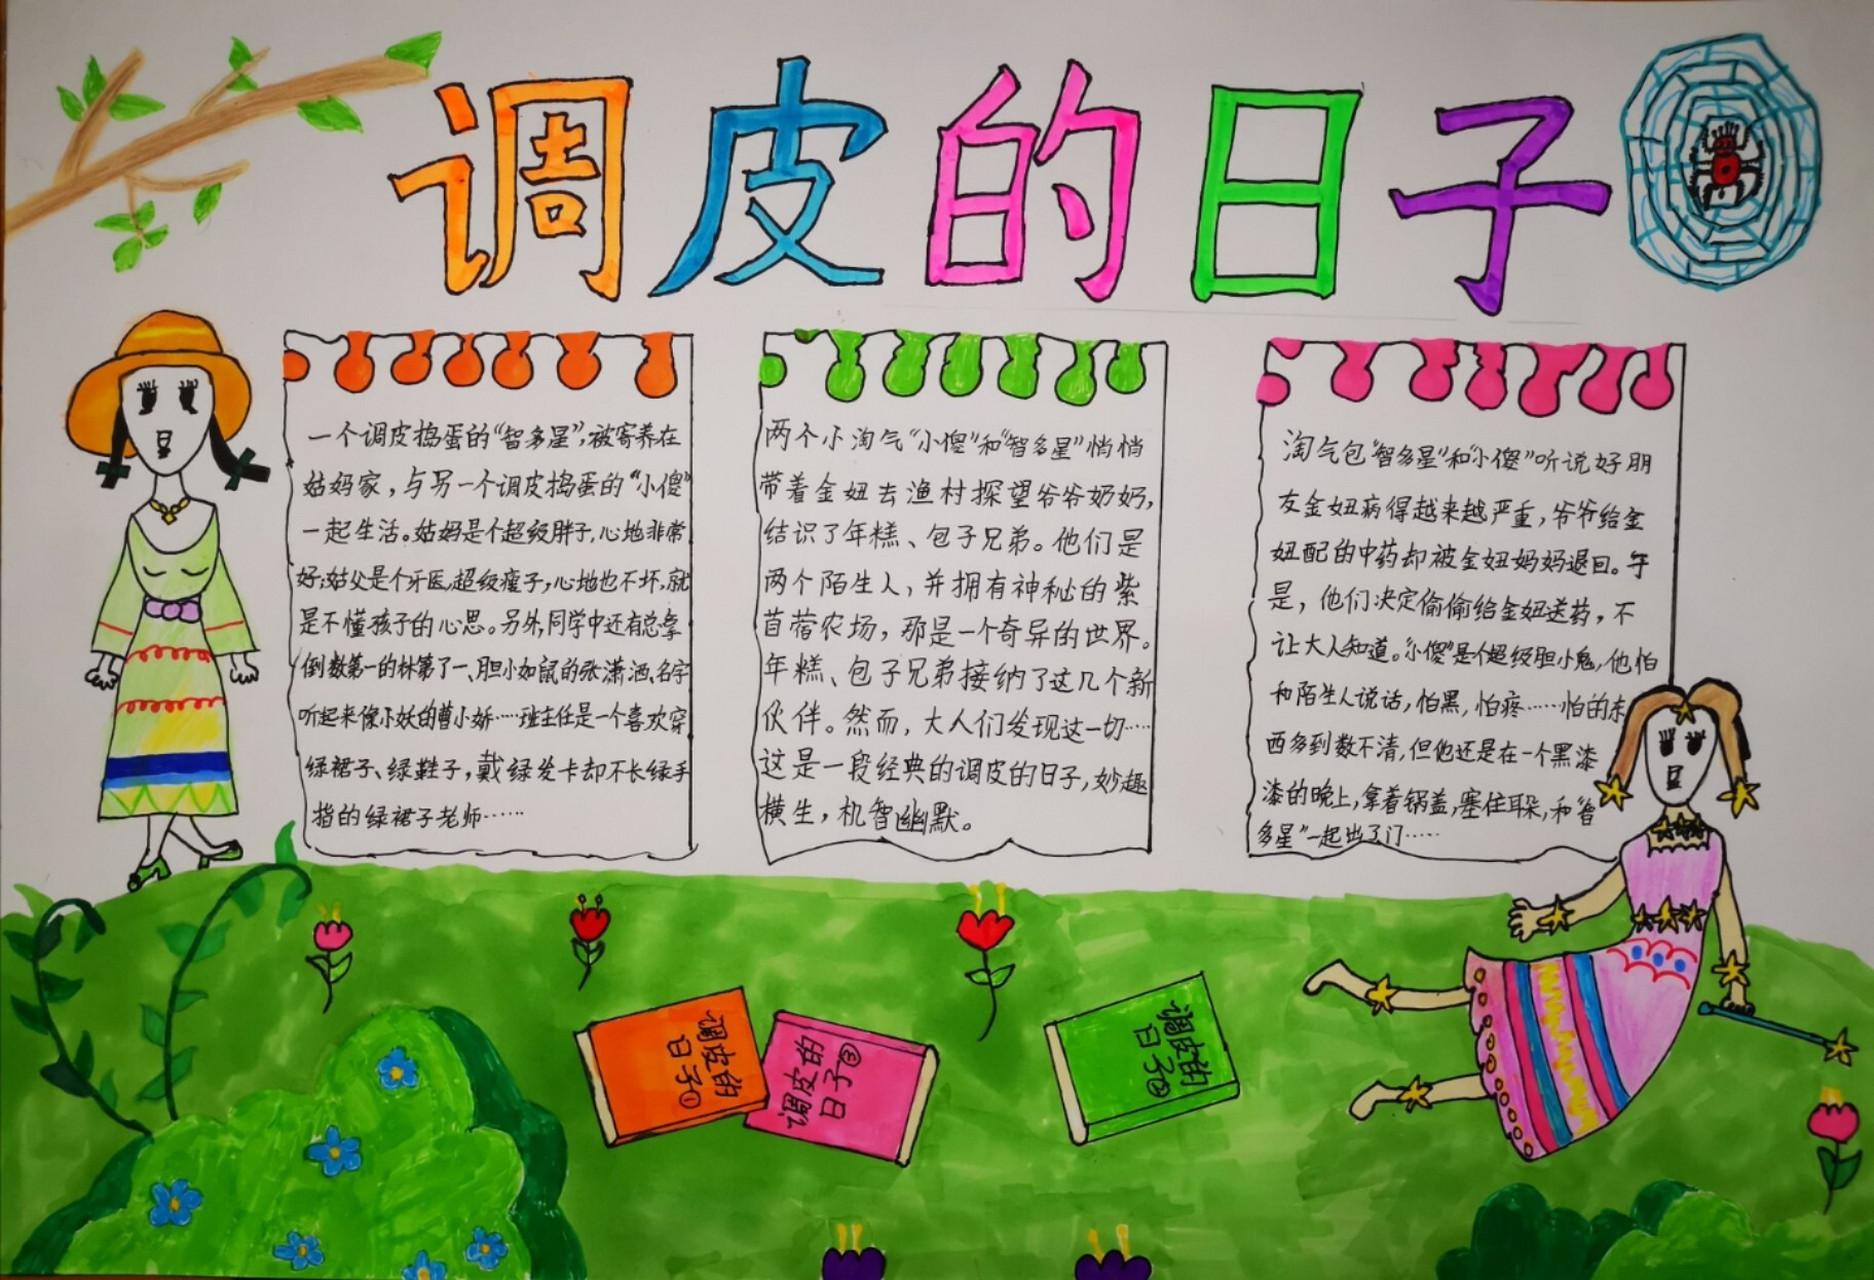 调皮的日子
一个调皮捣蛋的“智多星”,被寄养在
姑妈家，与另一个调皮捣蛋的“小傻”
一起生活。姑妈是个超级胖子,心地非常
好;姑父是个牙医,超级瘦子,心地也不坏,就
是不懂孩子的心思。另外,同学中还有总拿
倒数第一的林第了一、胆小如鼠的张潇洒、名字
听起来像小妖的曹小娇……班主任是一个喜欢穿
绿裙子、绿鞋子，戴绿发卡却不长绿手
指的绿裙子老师……
两个小淘气“小傻”和“智多星”悄悄
带着金妞去渔村探望爷爷奶奶,
结识了年糕、包子兄弟。他们是
两个陌生人，并拥有神秘的紫
苜蓿农场，那是一个奇异的世界。
年糕、包子兄弟接纳了这几个新
伙伴。然而，大人们发现这一切……
这是一段经典的调皮的日子,妙趣
横生，机智幽默。
淘气包“智多星”和“小傻”听说好朋
友金妞病得越来越严重，爷爷给金
妞配的中药却被金妞妈妈退回。于
是，他们决定偷偷给金妞送药，不
让大人知道。“小傻”是个超级胆小鬼,他怕
和陌生人说话，怕黑，怕疼……怕的东
西多到数不清,但他还是在一个黑漆
漆的晚上,拿着锅盖,塞住耳朵,和“智
多星”一起出了门……
调皮的
日子①
调皮的
日子③
调皮的
日子②